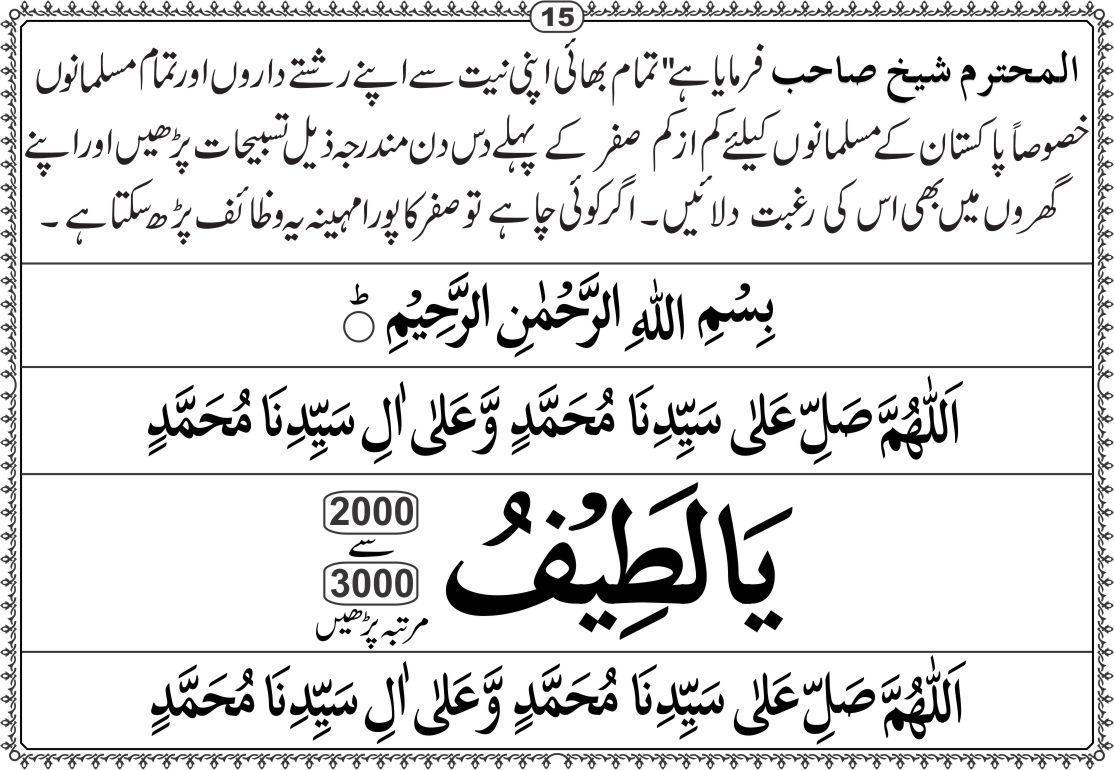 15
المحترم شیخ صاحب فرمایا ہے" تمام بھائی اپنی نیت سے اپنے رشتے داروں اور تمام مسلمانوں
خصوصاً پاکستان کے مسلمانوں کیلئے کم از کم صفر کے پہلے دس دن مندرجہ ذیل تسبیحات پڑھیں اور اپنے
گھروں میں بھی اس کی رغبت دلائیں۔ اگر کوئی چاہے تو صفر کا پورا مہینہ یہ وظائف پڑھ سکتا ہے۔
بِسْمِ اللّٰهِ الرَّحْمٰنِ الرَّحِیْمِ ؕ○
اَللّٰهُمَّ صَلِّ عَلٰی سَیِّدِنَا مُحَمَّدٍ وَّعَلٰی اٰلِ سَیِّدِنَا مُحَمَّدٍ
یَالَطِیْفُ
2000
سے
3000
مرتبہ پڑھیں
اَللّٰهُمَّ صَلِّ عَلٰی سَیِّدِنَا مُحَمَّدٍ وَّعَلٰی اٰلِ سَیِّدِنَا مُحَمَّدٍ